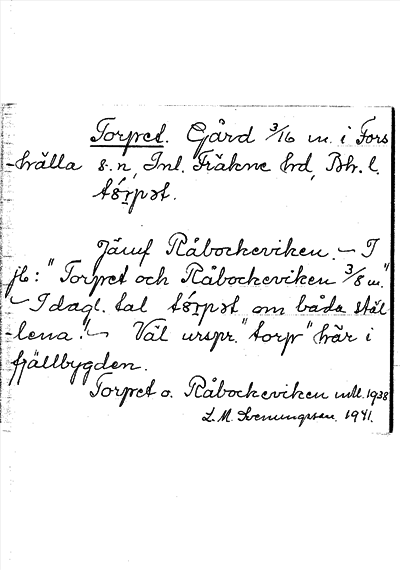 Torpet. Gård 3/16 m. i Fors
-hälla s:n, Inl. Fräkne hrd, Boh. l.
tórpət.
Jämf Råbockeviken. – I
jb: "Torpet och Råbockeviken 3/8 m."
– I dagl. tal tórpət om båda stäl
-lena. – Väl urspr. "torp" här i
fjällbygden.
Torpet o. Råbockeviken mtl. 1938
L. M. Svenungsson. 1941.